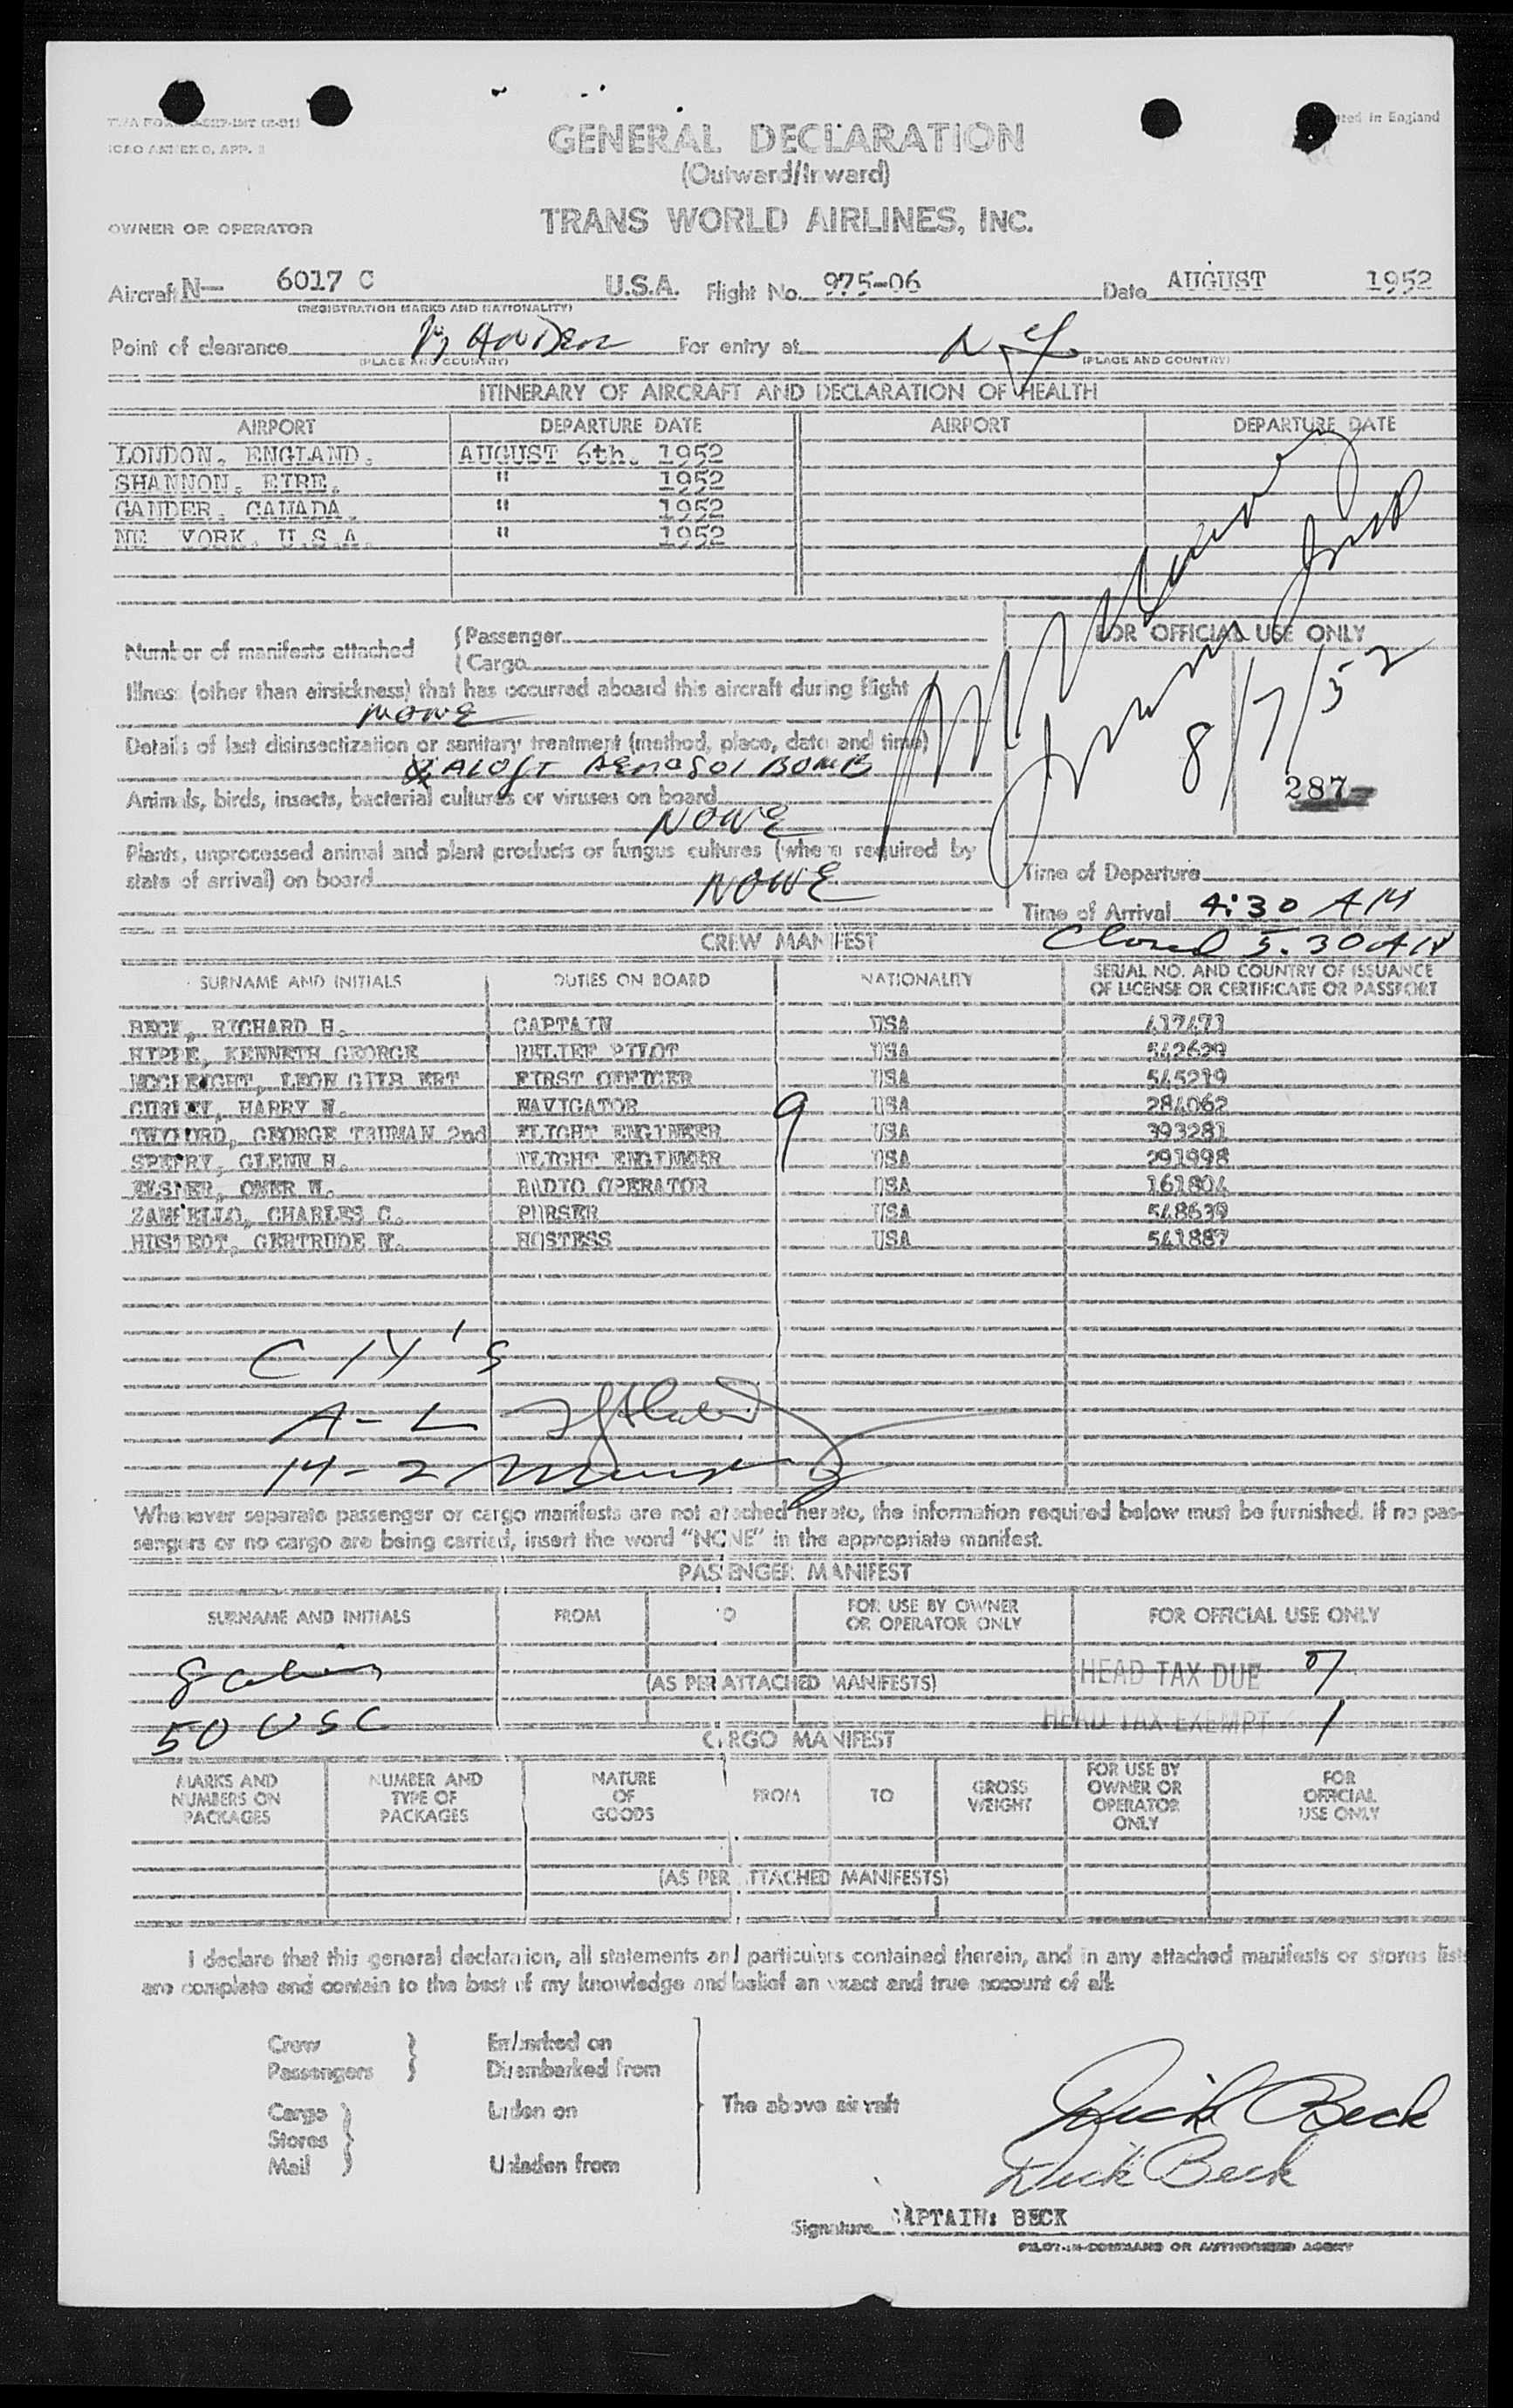 ICAO ANNEX 9, APP. 1
GENERAL DECLARATION
(Outward/Inward)
TRANS WORLD AIRLINES, INC.
OWNER OR OPERATOR
Aircraft N— 6017 C U.S.A. Flight No. 975-06 Date AUGUST 1952
(REGISTRATION MARKS AND NATIONALITY)
Point of clearance For entry at N Y
(PLACE AND COUNTRY) (PLACE AND COUNTRY)
ITINERARY OF AIRCRAFT AND DECLARATION OF HEALTH
AIRPORT DEPARTURE DATE AIRPORT DEPARTURE DATE
LONDON, ENGLAND. AUGUST 6th. 1952
SHANNON, EIRE. " 1952
GANDER, CANADA. " 1952
YORK, U.S.A. " 1952
Number of manifests attached { Passenger
{ Cargo
FOR OFFICIAL USE ONLY
Illness (other than airsickness) that has occurred aboard this aircraft during flight
NONE
8/7/52
Details of last disinsectization or sanitary treatment (method, place, date and time)
ALOFT AEROSOL BOMB
287
Animals, birds, insects, bacterial cultures or viruses on board
NONE
Plants, unprocessed animal and plant products or fungus cultures (where required by
state of arrival) on board NONE
Time of Departure
Time of Arrival 4:30 AM
Closed 5.30 AM
CREW MANIFEST
SURNAME AND INITIALS DUTIES ON BOARD NATIONALITY SERIAL NO. AND COUNTRY OF ISSUANCE
OF LICENSE OR CERTIFICATE OR PASSPORT
BECK, RICHARD H. CAPTAIN USA 417471
HIPPE, KENNETH GEORGE RELIEF PILOT USA 542629
LEON GILB ERT FIRST OFFICER USA 545219
CURLEY, HARRY W. NAVIGATOR 9 USA 284062
TWYFORD, GEORGE TRUMAN 2nd FLIGHT ENGINEER USA 393281
SPERRY, GLENN H. FLIGHT ENGINEER USA 291998
ELSNER, OMER W. RADIO OPERATOR USA 161804
CHARLES C. PURSER USA 548639
HUSTEDT, GERTRUDE W. HOSTESS USA 541887
A-L
Whenever separate passenger or cargo manifests are not attached hereto, the information required below must be furnished. If no pas-
sengers or no cargo are being carried, insert the word "NONE" in the appropriate manifest.
PASSENGER MANIFEST
SURNAME AND INITIALS FROM TO FOR USE BY OWNER
OR OPERATOR ONLY FOR OFFICIAL USE ONLY
8
(AS PER ATTACHED MANIFESTS)
HEAD TAX DUE 7
50 USC
HEAD TAX EXEMPT 1
CARGO MANIFEST
MARKS AND
NUMBERS ON
PACKAGES NUMBER AND
TYPE OF
PACKAGES NATURE
OF
GOODS FROM TO GROSS
WEIGHT FOR USE BY
OWNER OR
OPERATOR
ONLY FOR
OFFICIAL
USE ONLY
(AS PER ATTACHED MANIFESTS)
I declare that this general declaration, all statements and particulars contained therein, and in any attached manifests or stores lists
are complete and contain to the best of my knowledge and belief an exact and true account of all:
Crew } Embarked on
Passengers } Disembarked from
Cargo } Laden on
Stores
Mail } Unladen from
The above aircraft
Dick Beck
Dick Beck
Signature CAPTAIN: BECK
PILOT-IN-COMMAND OR AUTHORISED AGENT